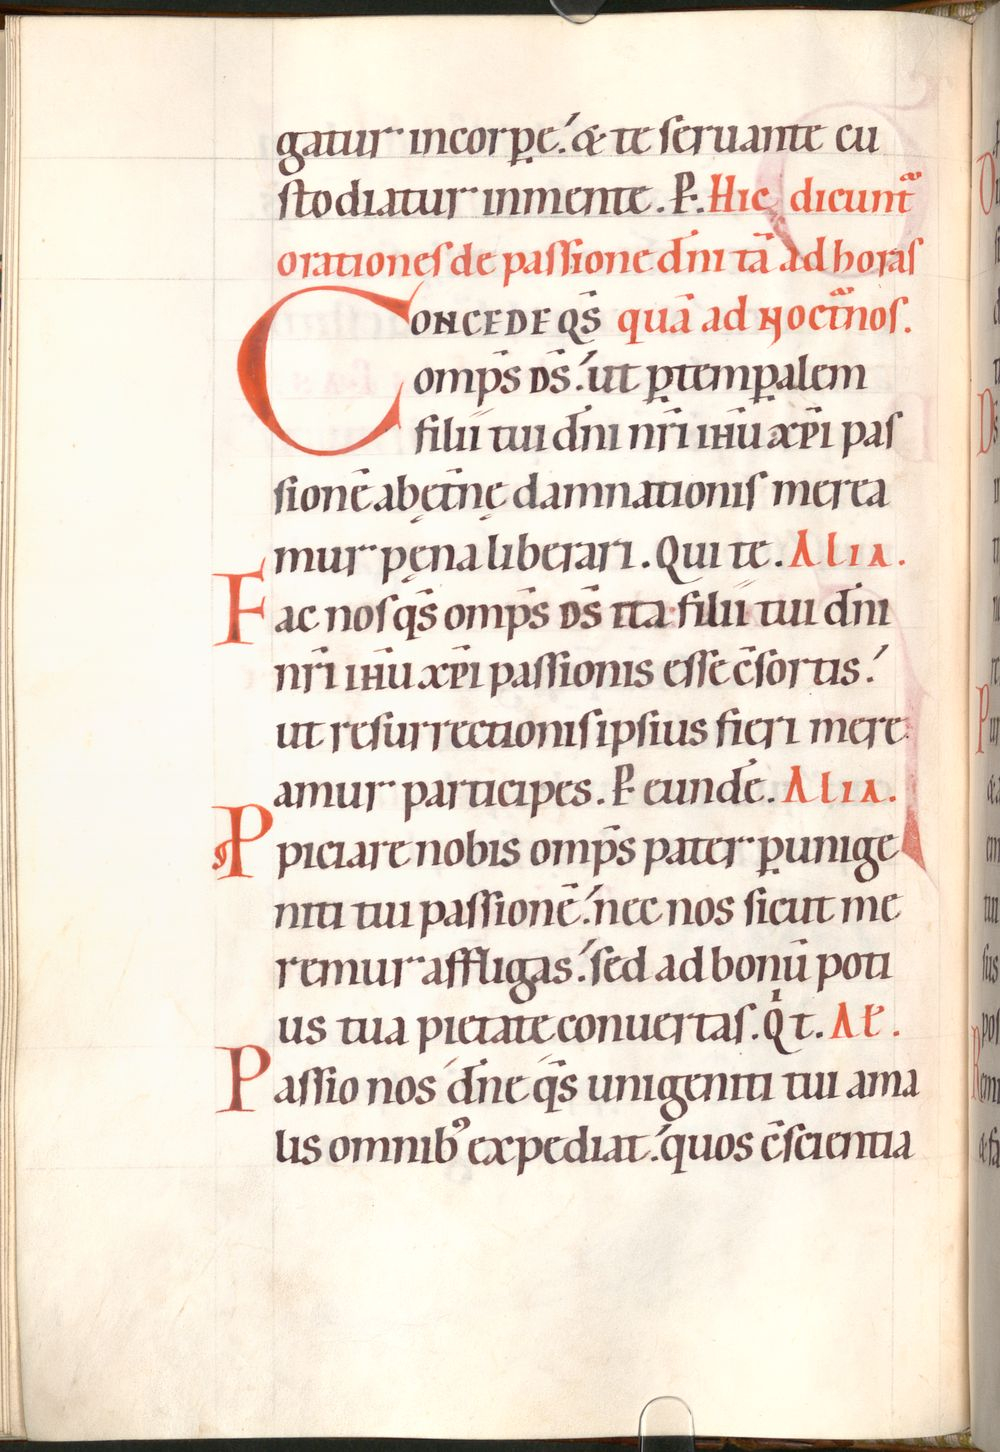 gatur incorꝑe. & te seruante cu
stodiatur inmente. P̄. Hic dicunt᷑
orationes de passione dn̄i tā ad horas
CONCEDE QS̄ quā ad Noct᷑nos.
omp̄s DS̄. ut ꝑtempꝑalem
filii tui dn̄i nr̄i ιHū xp̄i pas
sionē abęt̄nę damnationis merea
mur pęna liberari. Qui te. Alia.
Fac nos qs̄ omp̄s DS̄ ita filii tui dn̄i
nr̄i ιHū xp̄i passionis esse c̄sortis.
ut resurrectionis ipsius fieri mere
amur participes. P̄ eundē. Alia.
Ppiciare nobis omp̄s pater ꝑunige
niti tui passionē. nec nos sicut me
remur affligas. sed ad bonū poti
us tua pietate conuertas. Q̇ t. Al̄.
Passio nos dn̄e qs̄ unigeniti tui ama
lis omnibꝰ expediat. quos c̄scientia